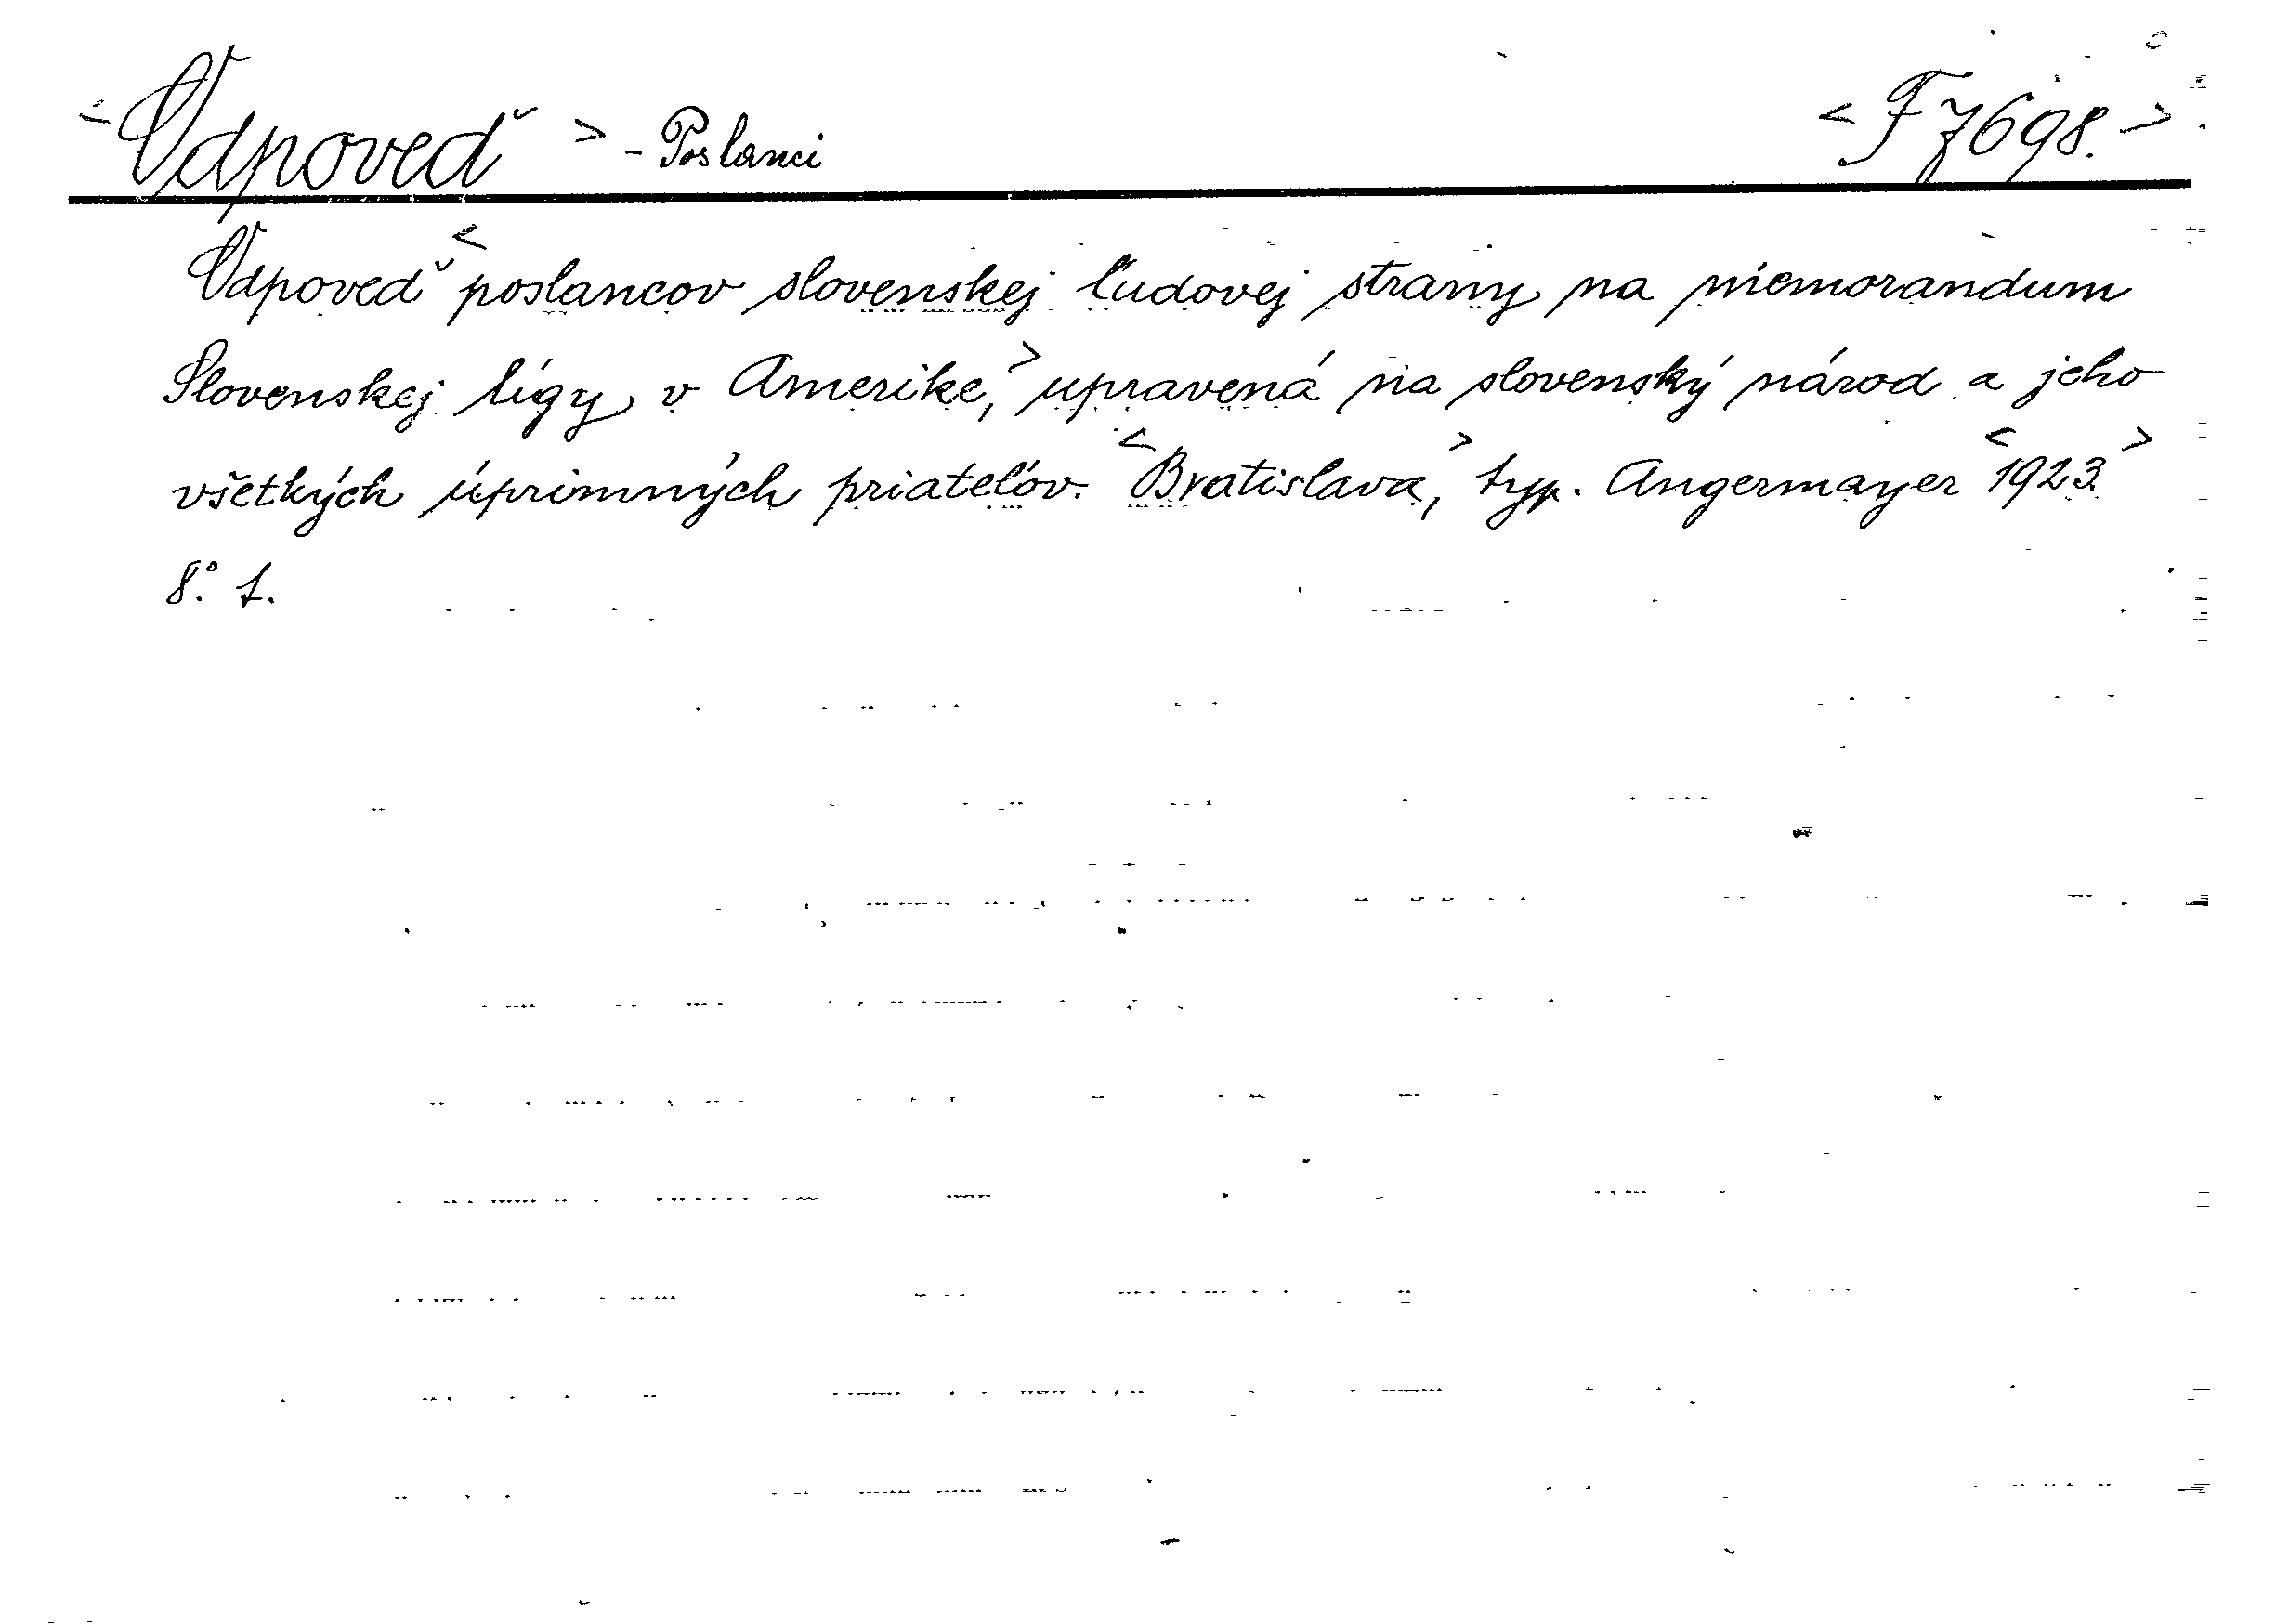 <Odpoveď> - Poslanci <F 7698.>
Odpoveď <poslancov slovenskej ľudovej strany na memorandum
Slovenskej lígy v Amerike,> upravená na slovenský národ a jeho
všetkých úprimných priateľov. <Bratislava,> typ. Angermayer <1923>
8.° 1.